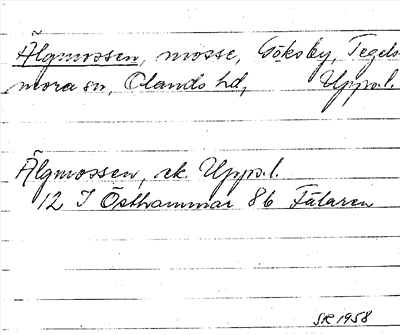 Älgmossen, mosse, Göksby, Tegels
mora sn, Olands hd, Upps.l.
Älgmossen, ek. Upps.l.
12 I Östhammar 86 Fälaren
SR 1958